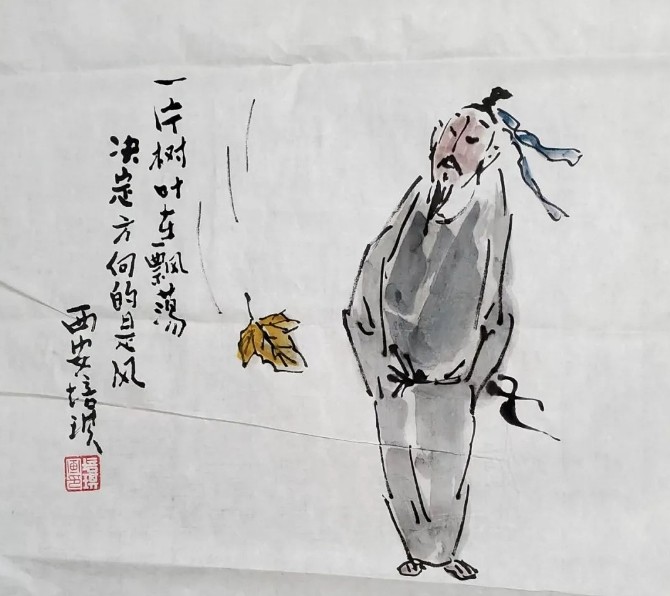 一片树叶在飘荡
决定方向的是风
西安培琪